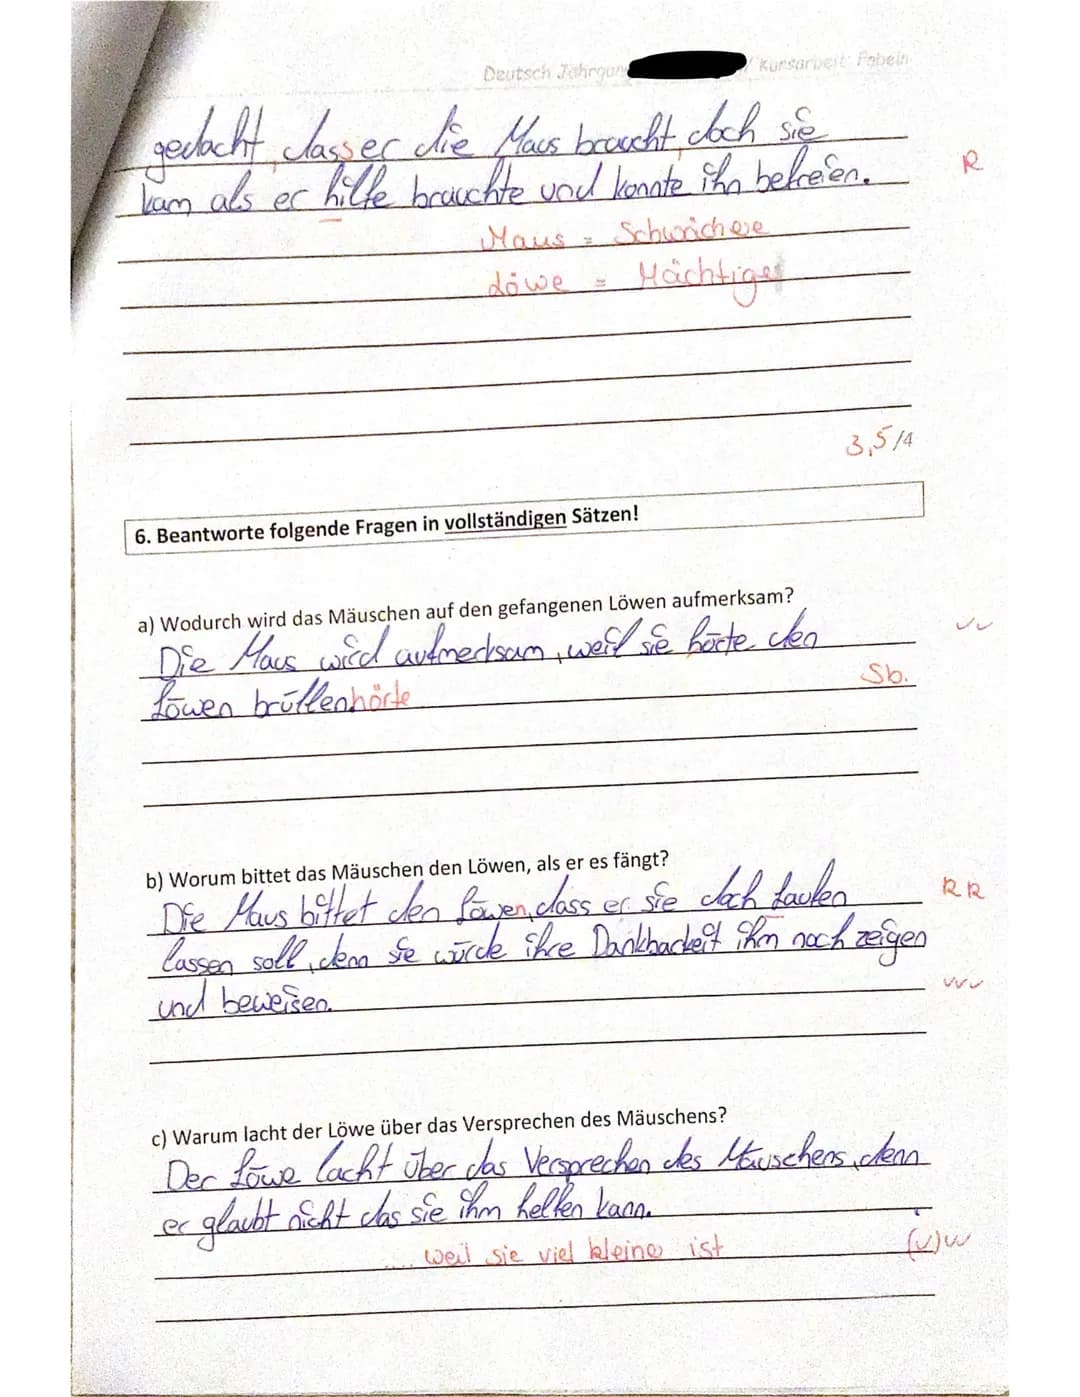 Deutsch Jahrgan / Kursarbeit: Fabeln
gedacht, dass er die Maus braucht, doch sie
kam als er hilfe brauchte und konnte ihn befreien. R
Maus = Schwächere
Löwe = Mächtiger
3,5/4
6. Beantworte folgende Fragen in vollständigen Sätzen!
a) Wodurch wird das Mäuschen auf den gefangenen Löwen aufmerksam?
Die Maus wird aufmerksam, weil sie hörte den
Löwen brüllen hörte Sb.
b) Worum bittet das Mäuschen den Löwen, als er es fängt?
Die Maus bittet den Löwen, dass er sie doch laufen R R
lassen soll, denn sie würde ihre Dankbarkeit ihm noch zeigen
und beweisen.
c) Warum lacht der Löwe über das Versprechen des Mäuschens?
Der Löwe lacht über das Versprechen des Mäuschens, denn
er glaubt nicht das sie ihm helfen kann.
.... weil sie viel kleiner ist